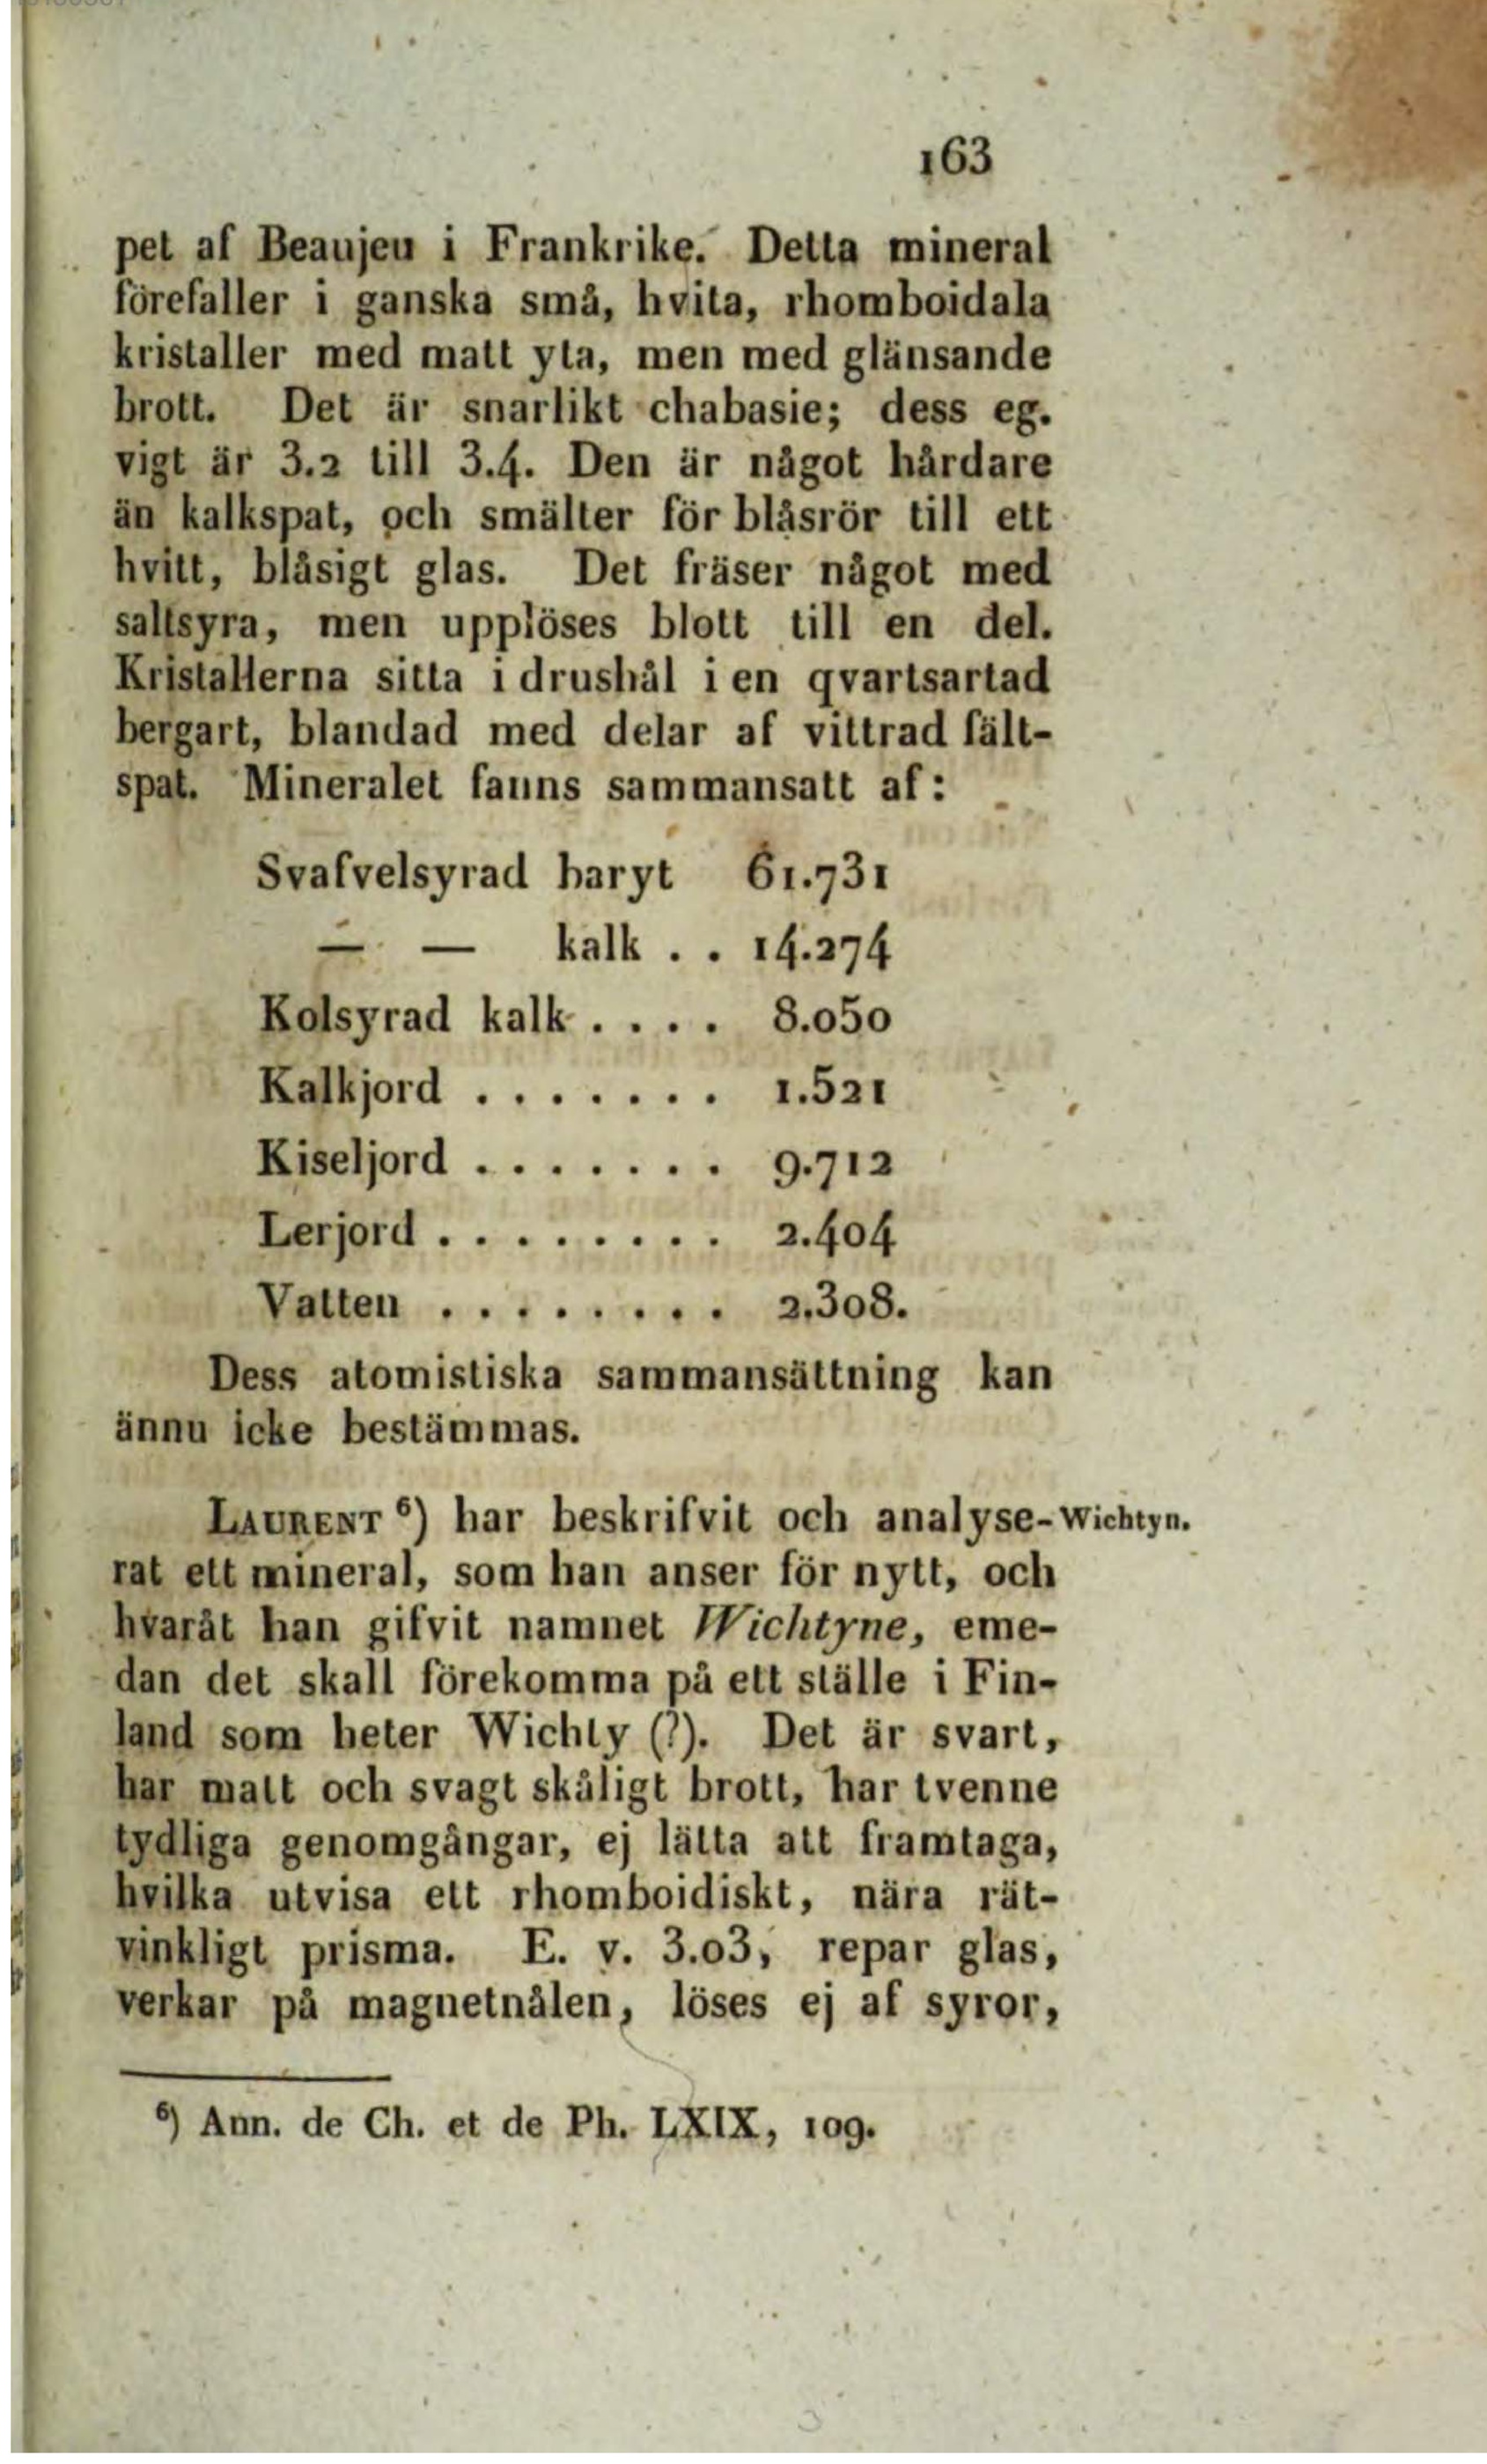 163
pet af Beaujeu i Frankrike. Detta mineral
förefaller i ganska små, hvita, rhomboidala
kristaller med matt yta, men med glänsande
brott. Det är snarlikt chabasie; dess eg.
vigt är 3.2 till 3.4. Den är något hårdare
än kalkspat, och smälter för blåsrör till ett
hvitt, blåsigt glas. Det fräser något med
saltsyra, men upplöses blott till en del.
Kristallerna sitta i drushål i en qvartsartad
bergart, blandad med delar af vittrad fält-
spat. Mineralet fanns sammansatt af:
Svafvelsyrad baryt 61.731
— — kalk . . 14.274
Kolsyrad kalk . . . . 8.050
Kalkjord . . . . . . . 1.521
Kiseljord . . . . . . . 9.712
Lerjord . . . . . . . . 2.404
Vatten . . . . . . . . 2.308.
Dess atomistiska sammansättning kan
ännu icke bestämmas.
LAURENT ⁶) har beskrifvit och analyse- Wichtyn.
rat ett mineral, som han anser för nytt, och
hvaråt han gifvit namnet Wichtyne, eme-
dan det skall förekomma på ett ställe i Fin-
land som heter Wichty (?). Det är svart,
har matt och svagt skåligt brott, har tvenne
tydliga genomgångar, ej lätta att framtaga,
hvilka utvisa ett rhomboidiskt, nära rät-
vinkligt prisma. E. v. 3.03, repar glas,
verkar på magnetnålen, löses ej af syror,
⁶) Ann. de Ch. et de Ph. LXIX, 109.